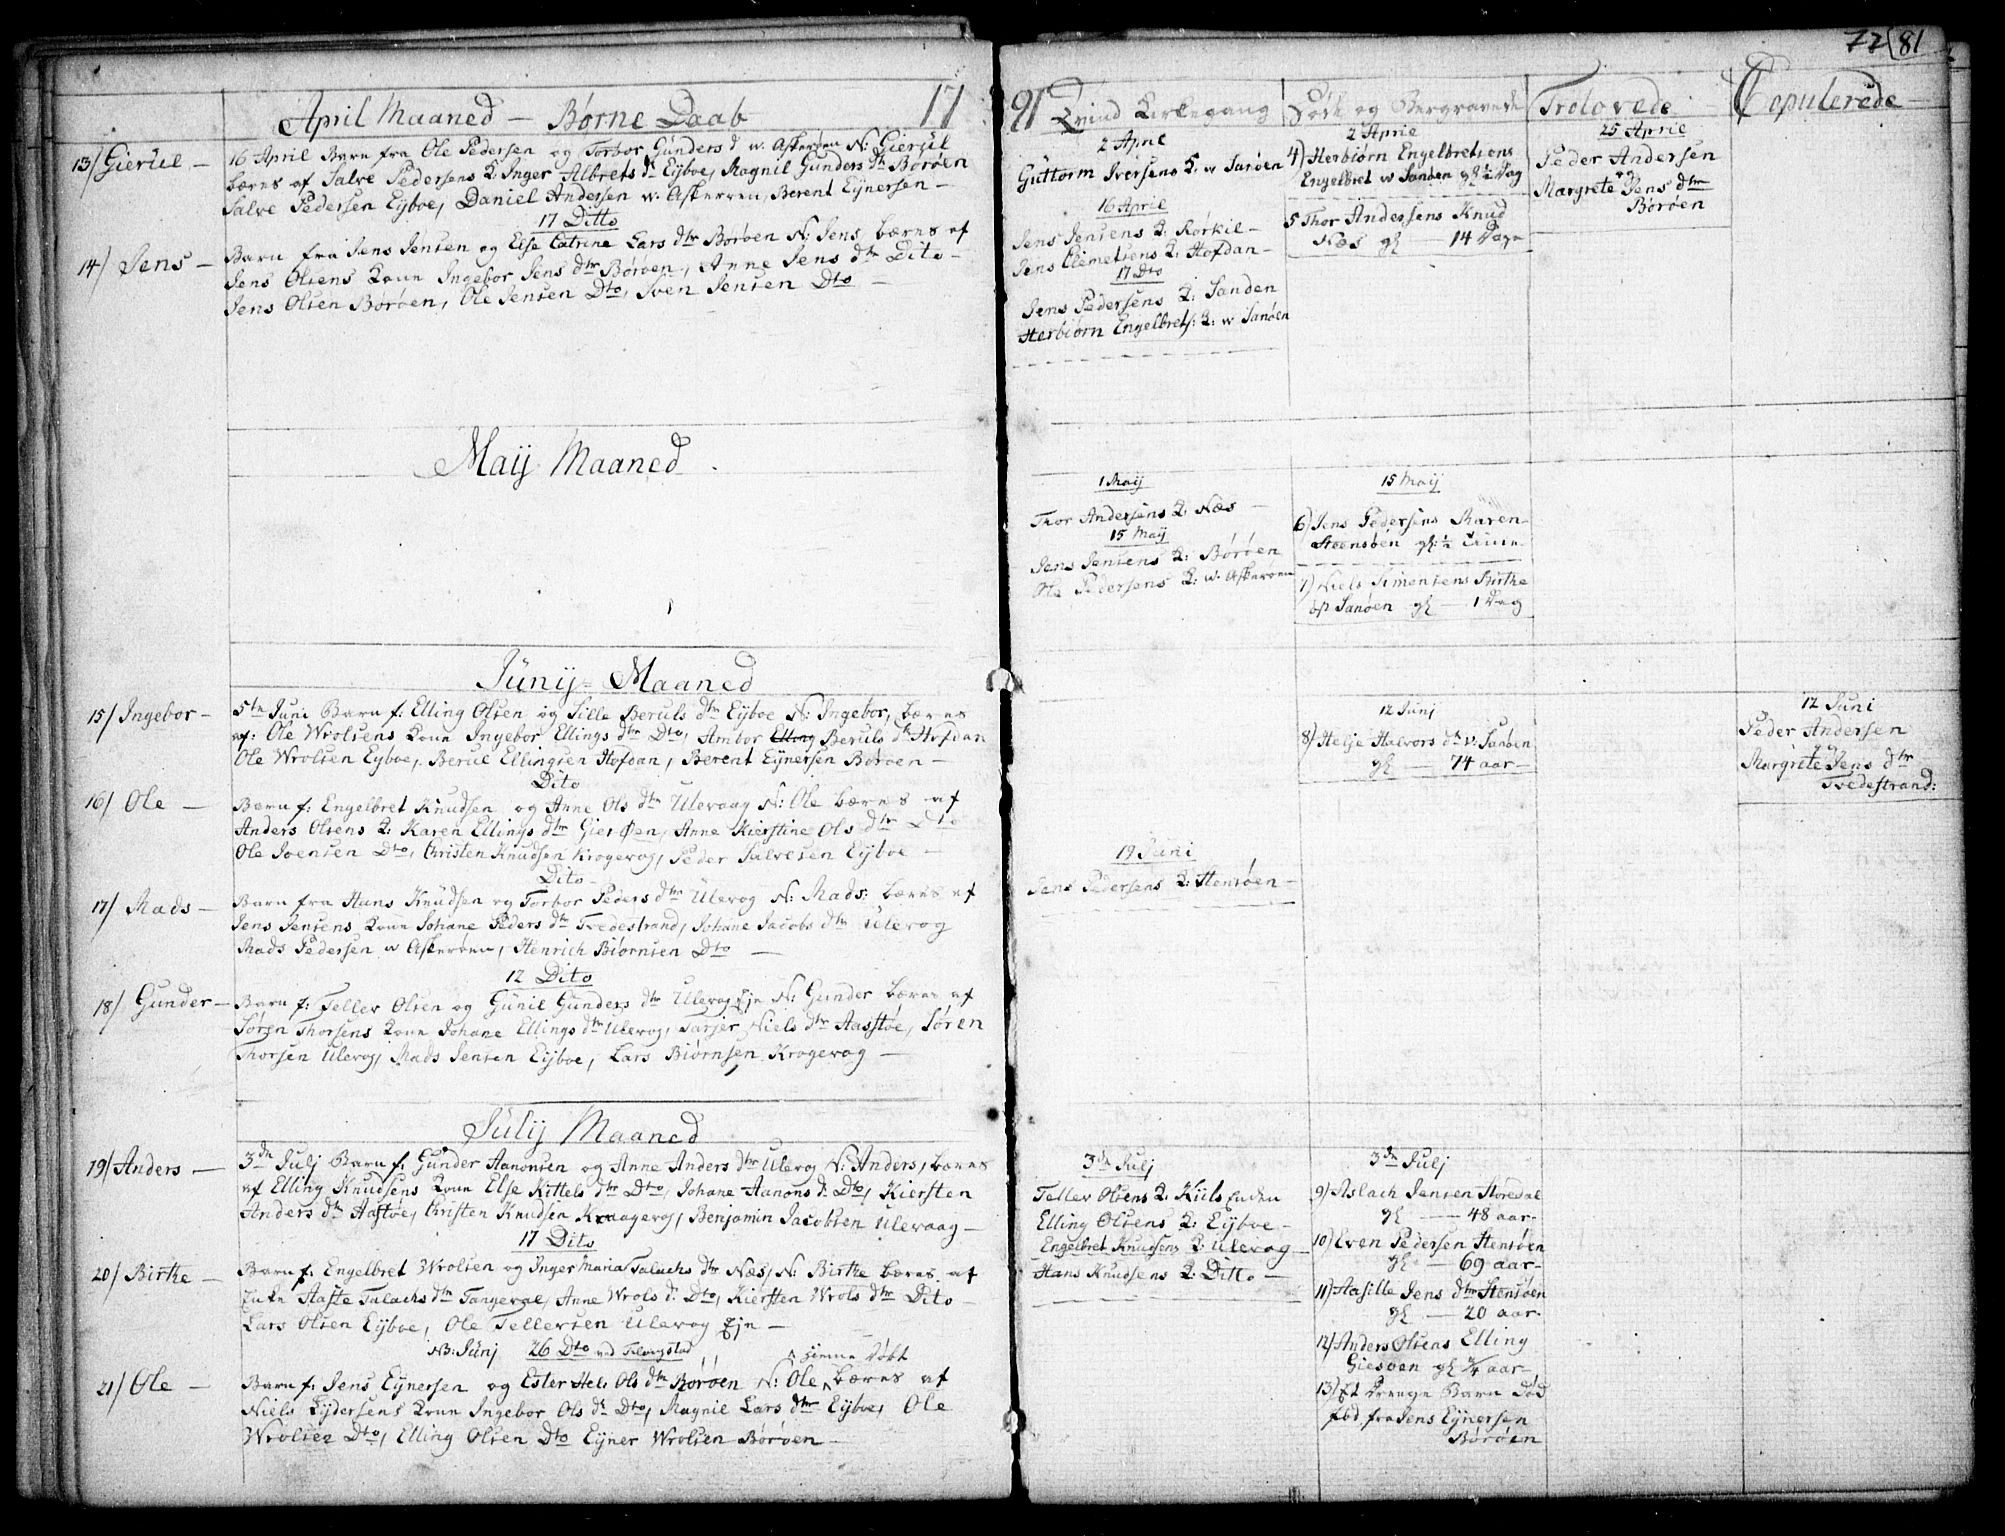 April Maaned — Børne Daab 17
13/ Gierul — 16 April Barn fra Ole Pedersen og Torbor Gunders d w. Askerøen N: Gierul
bæres af Salve Pedersens K: Inger Albrets d Eijboe, Magnil Gunders dtr Borøen
Salve Pedersen Eijboe, Daniel Andersen w. Askerøen, Berent Eijnersen —
17 Ditto
14/ Jens — Barn fra Jens Jensen og Else Catrine Lars dtr Borøen N: Jens bæres af
Jens Olsens Kone Ingebor Jens dtr Borøen, Anne Jens dtr Dito —
Jens Olsen Borøen, Ole Jensen Dto, Sven Jensen Dto —
Maij Maaned
Junij = Maaned
15/ Ingebor — 5te Juni Barn f: Elling Olsen og Sille Beruls dtr Eijboe N: Ingebor, bæres
af: Ole Wrolsens Kone Ingebor Ellings dtr Dto, Ambor Elling Beruls dtr Hofdan
Ole Wrolsen Eyboe, Berul Ellingsen Hofdan, Berent Eijnersen Borøen —
Dito
16/ Ole — Barn f: Engelbret Knudsen og Anne Ols dtr Ulevaag N: Ole bæres af
Anders Olsens K: Karen Ellings dtr Gierøen, Anne Kierstine Ols dtr Dto
Ole Ivensen Dto, Christen Knudsen Krogevog, Peder Salvesen Eijboe —
Dito
17/ Mads — Barn fra Hans Knudsen og Torbor Peders dtr Ulevog N: Mads: bæres af
Jens Jensens Kone Johane Peders dtr Tvedestrand, Johane Jacobs dtr Ulevog
Mads Pedersen w Askerøen, Henrich Biørnsen Dto —
12 Dito
18/ Gunder — Barn f: Tellev Olsen og Gunil Gunders dtr Ulevog Eje N: Gunder bæres af
Søren Thorsens Kone Johane Ellings dtr Ulevog, Tarjer Niels dtr Aasstøe, Søren
Thorsen Ulevog, Mads Jensen Eijboe, Lars Biørnsen Krogevog —
Julij Maaned
19/ Anders — 3de Julj Barn f: Gunder Aanonsen og Anne Anders dtr Ulevog N: Anders, bæres
af Elling Knudsens Kone Else Kittels dtr Dto, Johane Aanons d: Dto, Kiersten
Anders dtr Aastøe, Christen Knudsen Kraagevog, Benjamin Jacobsen Ulevaag —
17 Dito
20/ Birthe — Barn f: Engelbret Wrolsen og Inger Maria Talachs dtr Næs, N: Birthe bæres af
Enke Aaste Talachs dtr Tangeval, Anne Wrols d: Dto, Kiersten Wrols dtr Dito —
Lars Olsen Eijboe, Ole Tellersen Ulevog Eje —
NB: Junj 26 Dto ved hiemme Døbt
21/ Ole — Barn f: Jens Eijnersen og Ester Hel: Ols dtr Borøen N: Ole bæres af
Niels Eijdersens Kone Ingebor Ols d Dto, Magnil Lars dtr Eijboe, Ole
Wrolsen Dto, Elling Olsen Dto Eijner Wrolsen Borøen —
77 81
91 Qvind Kirkegang
2 Apriel
Guttorm Iversens K. w Sanøen
16 April
Jens Jensens K. Kørkil —
Jens Clemetsens K. Hofdan —
17 Dto
Jens Pedersens K: Sanden
Herbiørn Engelbrets: K: w Sanøen
1 Maij
Thor Andersens K. Næs —
15 Maij
Jens Jensens K: Borøen
Ole Pedersens K: w. Askerøen
19 Juni
Jens Pedersens K: Stensøen —
3de Julj
Tellev Olsens K: Kiils Enden
Elling Olsens K: Eijboe —
Engelbret Knudsens K: Ulevog —
Hans Knudsens K: Ditto —
Døde og Begravede
2 Aprie
4) Herbiørn Engelbretsens
Engelbret w Sanøen gl ½ Dag
5 Thor Andersens Knud
Næs gl — 14 Dage
15 Maij
6) Jens Pedersens Maren
Steensøen gl: ½
7) Niels Simensens Birthe
op Sanøen gl — 1 Dag
12 Junj
8) Helje Halvors dtr v. Sanøen
gl — 74 aar —
3de Julj
9) Aslach Jensen Støredal
gl — 48 aar —
10) Even Pedersen Stensøen
gl — 69 aar —
11) Aasille Jens dtr Stensøen
gl — 20 aar —
12) Anders Olsens Elling
Giesøen gl ¾ aar —
13) Et Drenge Barn død
fød fra Jens Eijnersen
Borøen
Trolovede
25 Aprie
Peder Andersen
og
Margrete Jens dtr
Borøen
Copulerede
12 Juni
Peder Andersen
og
Margrete Jens dtr
Tvedestrand: